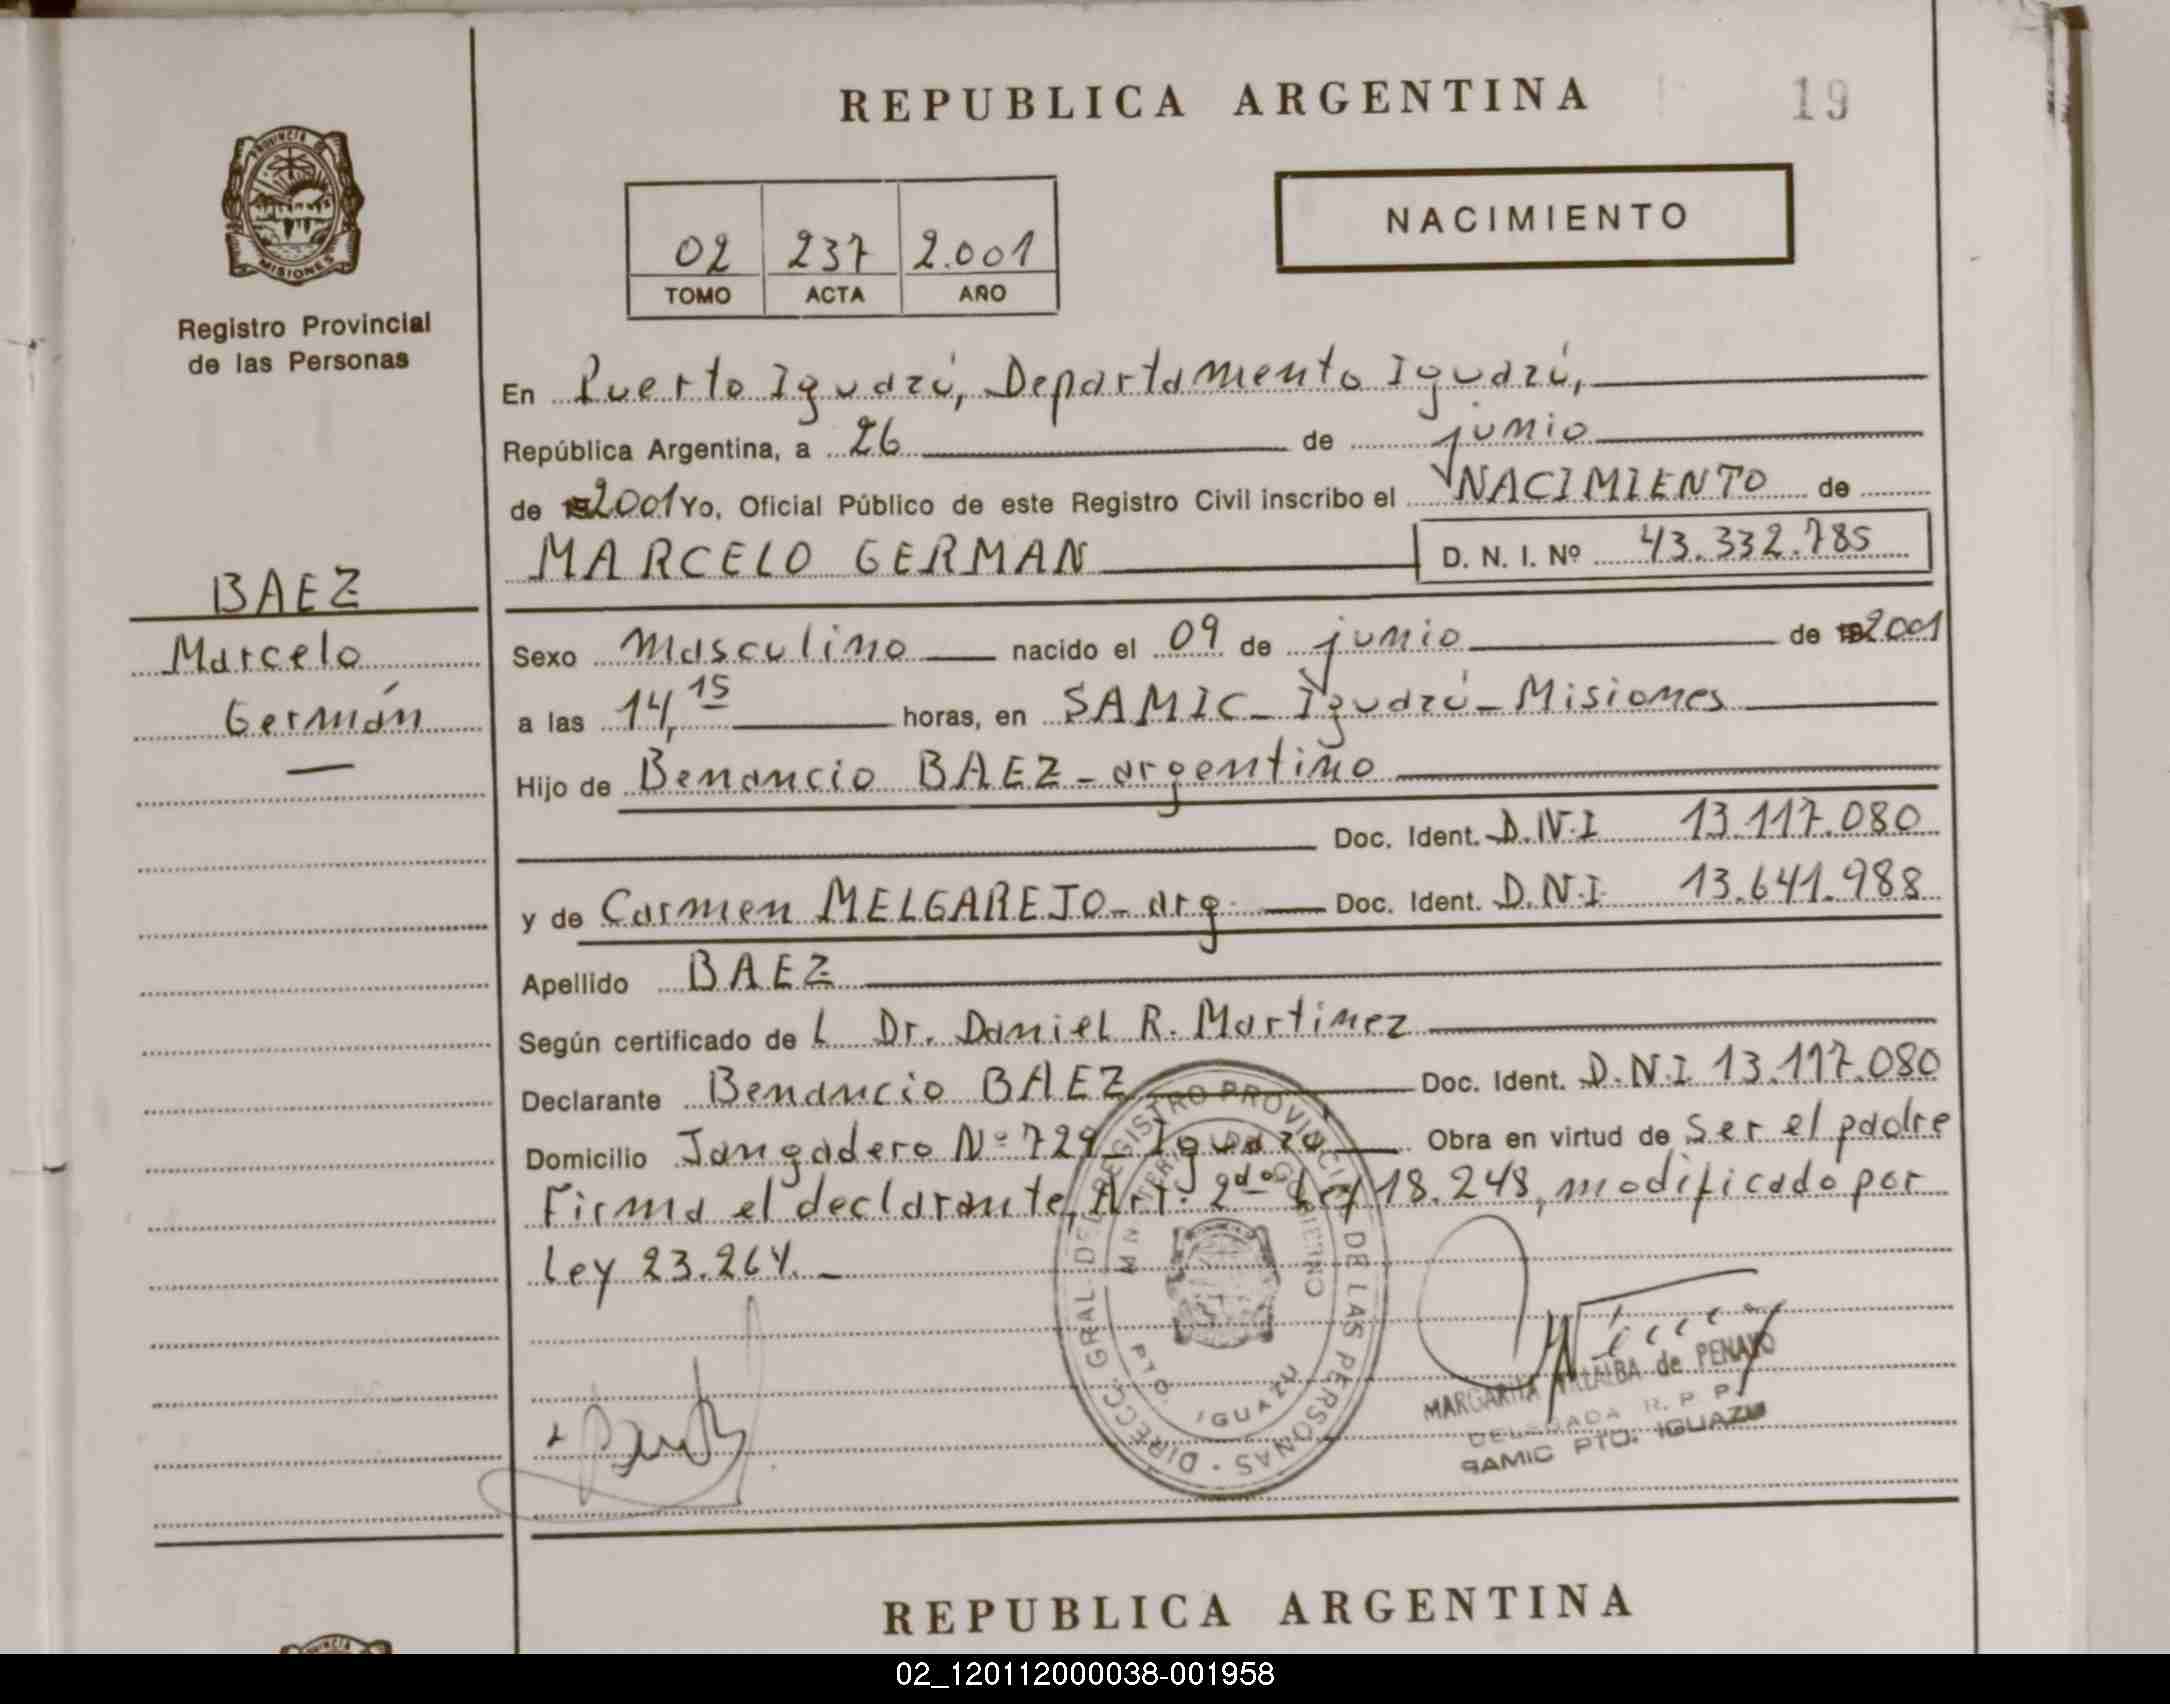 REPUBLICA ARGENTINA
19
PROVINCIA DE
MISIONES
Registro Provincial
de las Personas
02 237 2.001
TOMO ACTA AÑO
NACIMIENTO
En Puerto Iguazú, Departamento Iguazú,
República Argentina, a 26 de junio
de 2001 Yo, Oficial Público de este Registro Civil inscribo el NACIMIENTO de
MARCELO GERMAN D. N. I. Nº 43.332.785
BAEZ
Marcelo
Germán
Sexo masculino nacido el 09 de junio de 2001
a las 14,15 horas, en SAMIC - Iguazú - Misiones
Hijo de Benancio BAEZ - argentino
Doc. Ident. D.N.I 13.117.080
y de Carmen MELGAREJO - arg. Doc. Ident. D.N.I 13.641.988
Apellido BAEZ
Según certificado de L Dr. Daniel R. Martinez
Declarante Benancio BAEZ Doc. Ident. D.N.I 13.117.080
Domicilio Jangadero Nº 729 - Iguazú Obra en virtud de ser el padre
Firma el declarante, Art. 2do Ley 18.248, modificado por
Ley 23.264. -
DIRECC. GRAL. DEL REGISTRO PROVINCIAL DE LAS PERSONAS
MINISTERIO DE GOBIERNO
PTO. IGUAZU
MARGARITA VILLALBA de PENAYO
DELEGADA R. P. P.
SAMIC PTO. IGUAZU
REPUBLICA ARGENTINA
02_120112000038-001958